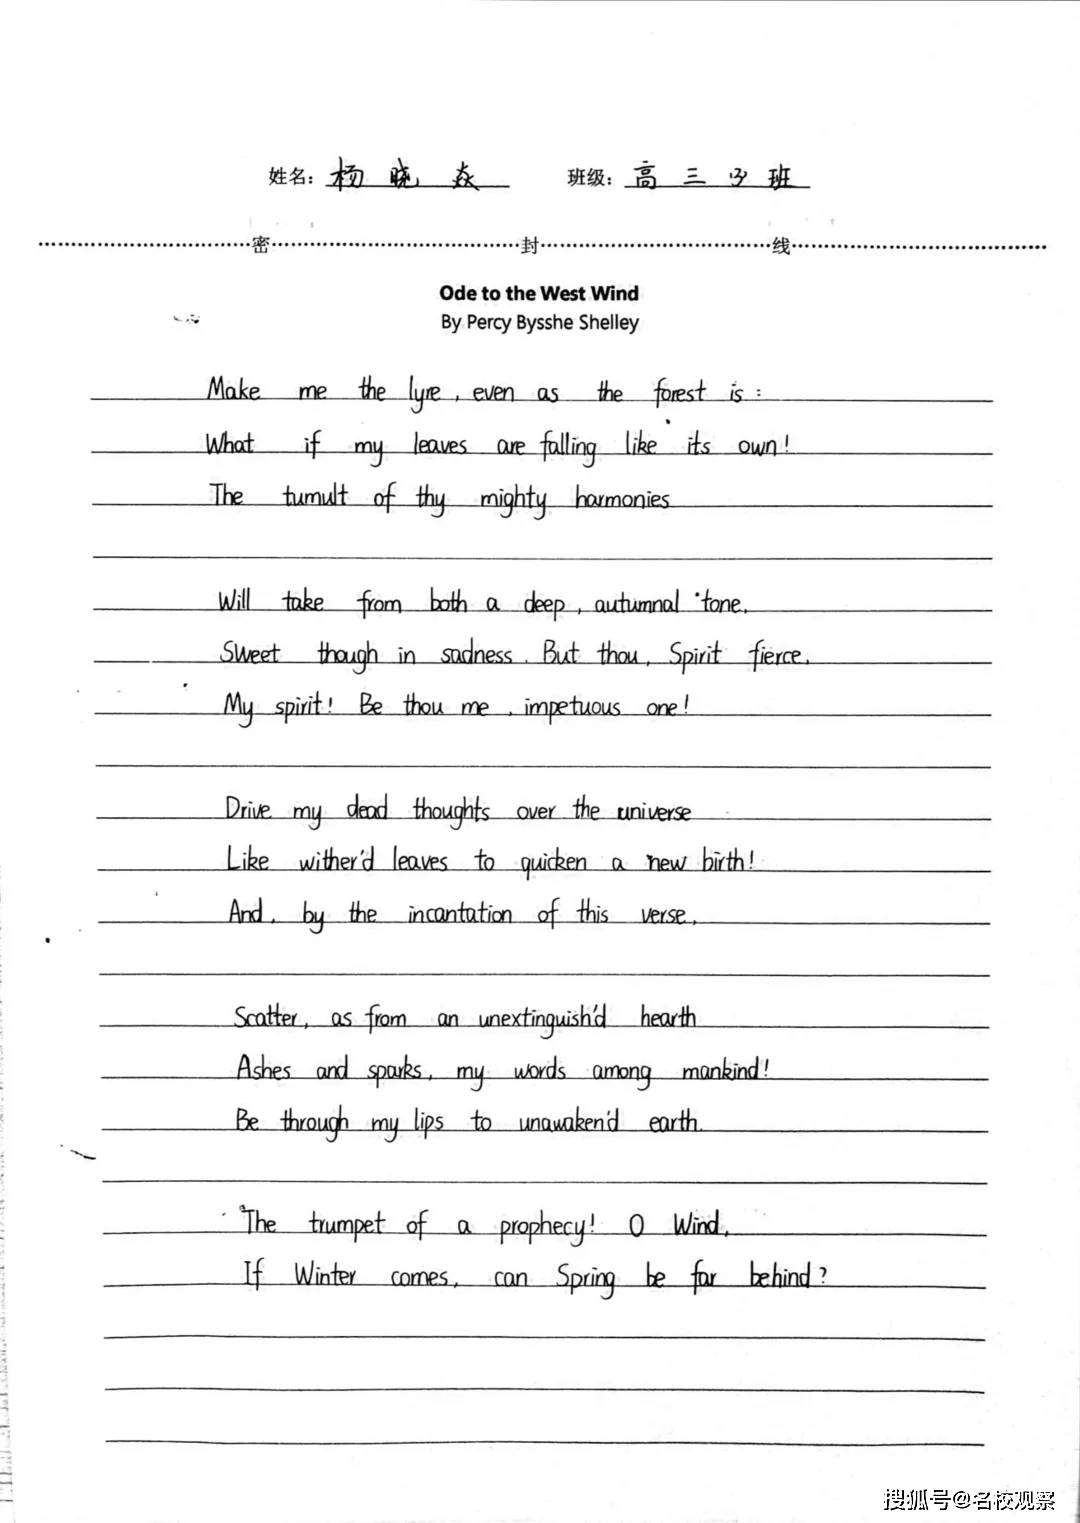 姓名: 杨晓焱 班级: 高三13班
密 封 线
Ode to the West Wind
By Percy Bysshe Shelley
Make me the lyre, even as the forest is:
What if my leaves are falling like its own!
The tumult of thy mighty harmonies
Will take from both a deep, autumnal tone,
Sweet though in sadness. But thou, Spirit fierce,
My spirit! Be thou me, impetuous one!
Drive my dead thoughts over the universe
Like wither'd leaves to quicken a new birth!
And, by the incantation of this verse,
Scatter, as from an unextinguish'd hearth
Ashes and sparks, my words among mankind!
Be through my lips to unawaken'd earth.
The trumpet of a prophecy! O Wind,
If Winter comes, can Spring be far behind?
搜狐号@名校观察